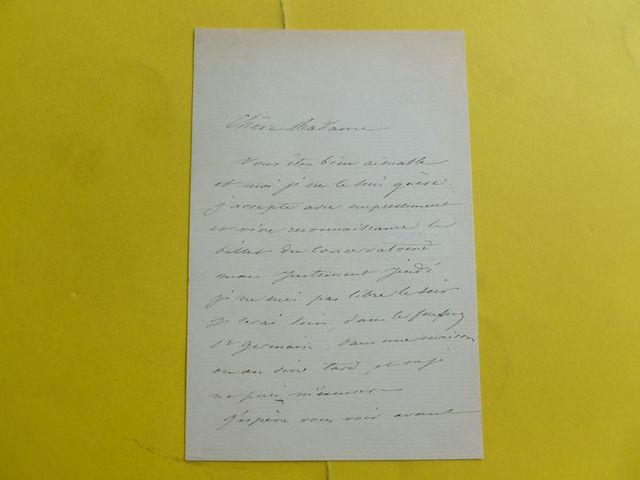 Chère Madame
Vous êtes bien aimable
et moi je ne le suis guère.
J'accepte avec empressement
et vive reconnaissance le
billet du Conservatoire
mais justement jeudi
je ne suis pas libre le soir
je serai loin, dans le faubourg
St Germain, dans une maison
où on dîne tard, et où je
ne puis m'excuser
J'espère vous voir avant